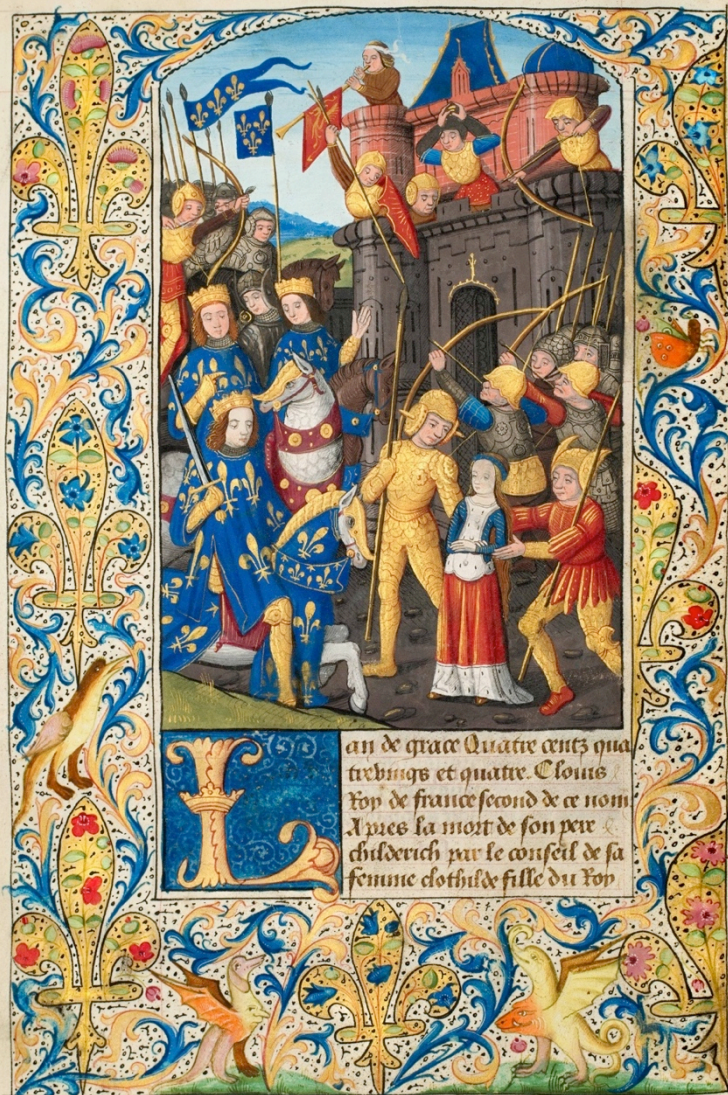 Lan de grace Quatre centz qua
trevings et quatre. Clouis
Roy de france second de ce nom
Apres la mort de son pere
childerich par le conseil de sa
femme clothilde fille du Roy